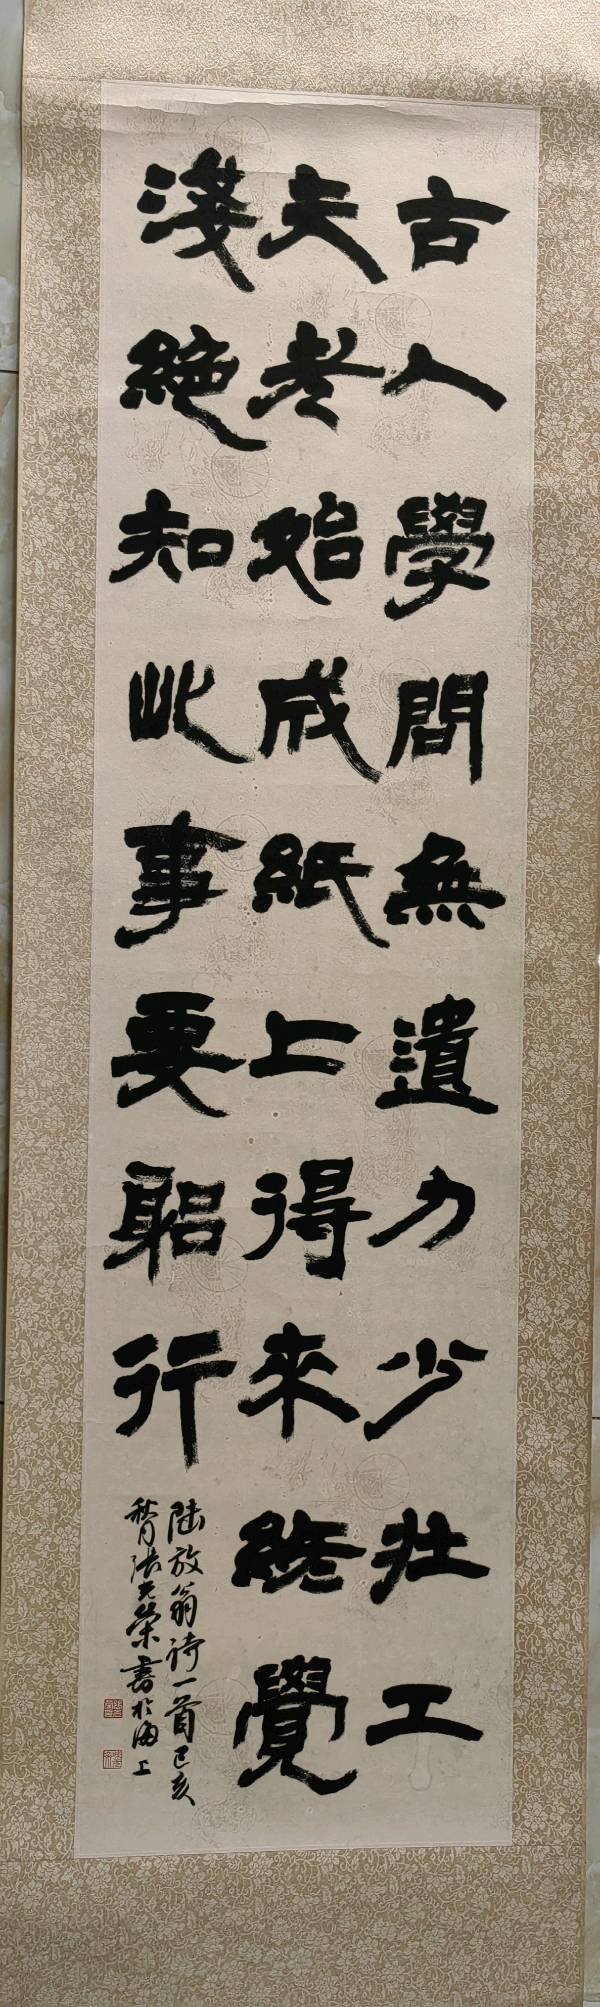 古人學問無遺力少壯工
夫老始成紙上得來終覺
淺絶知此事要躬行
陸放翁詩一首己亥
秋月張元榮書於海上